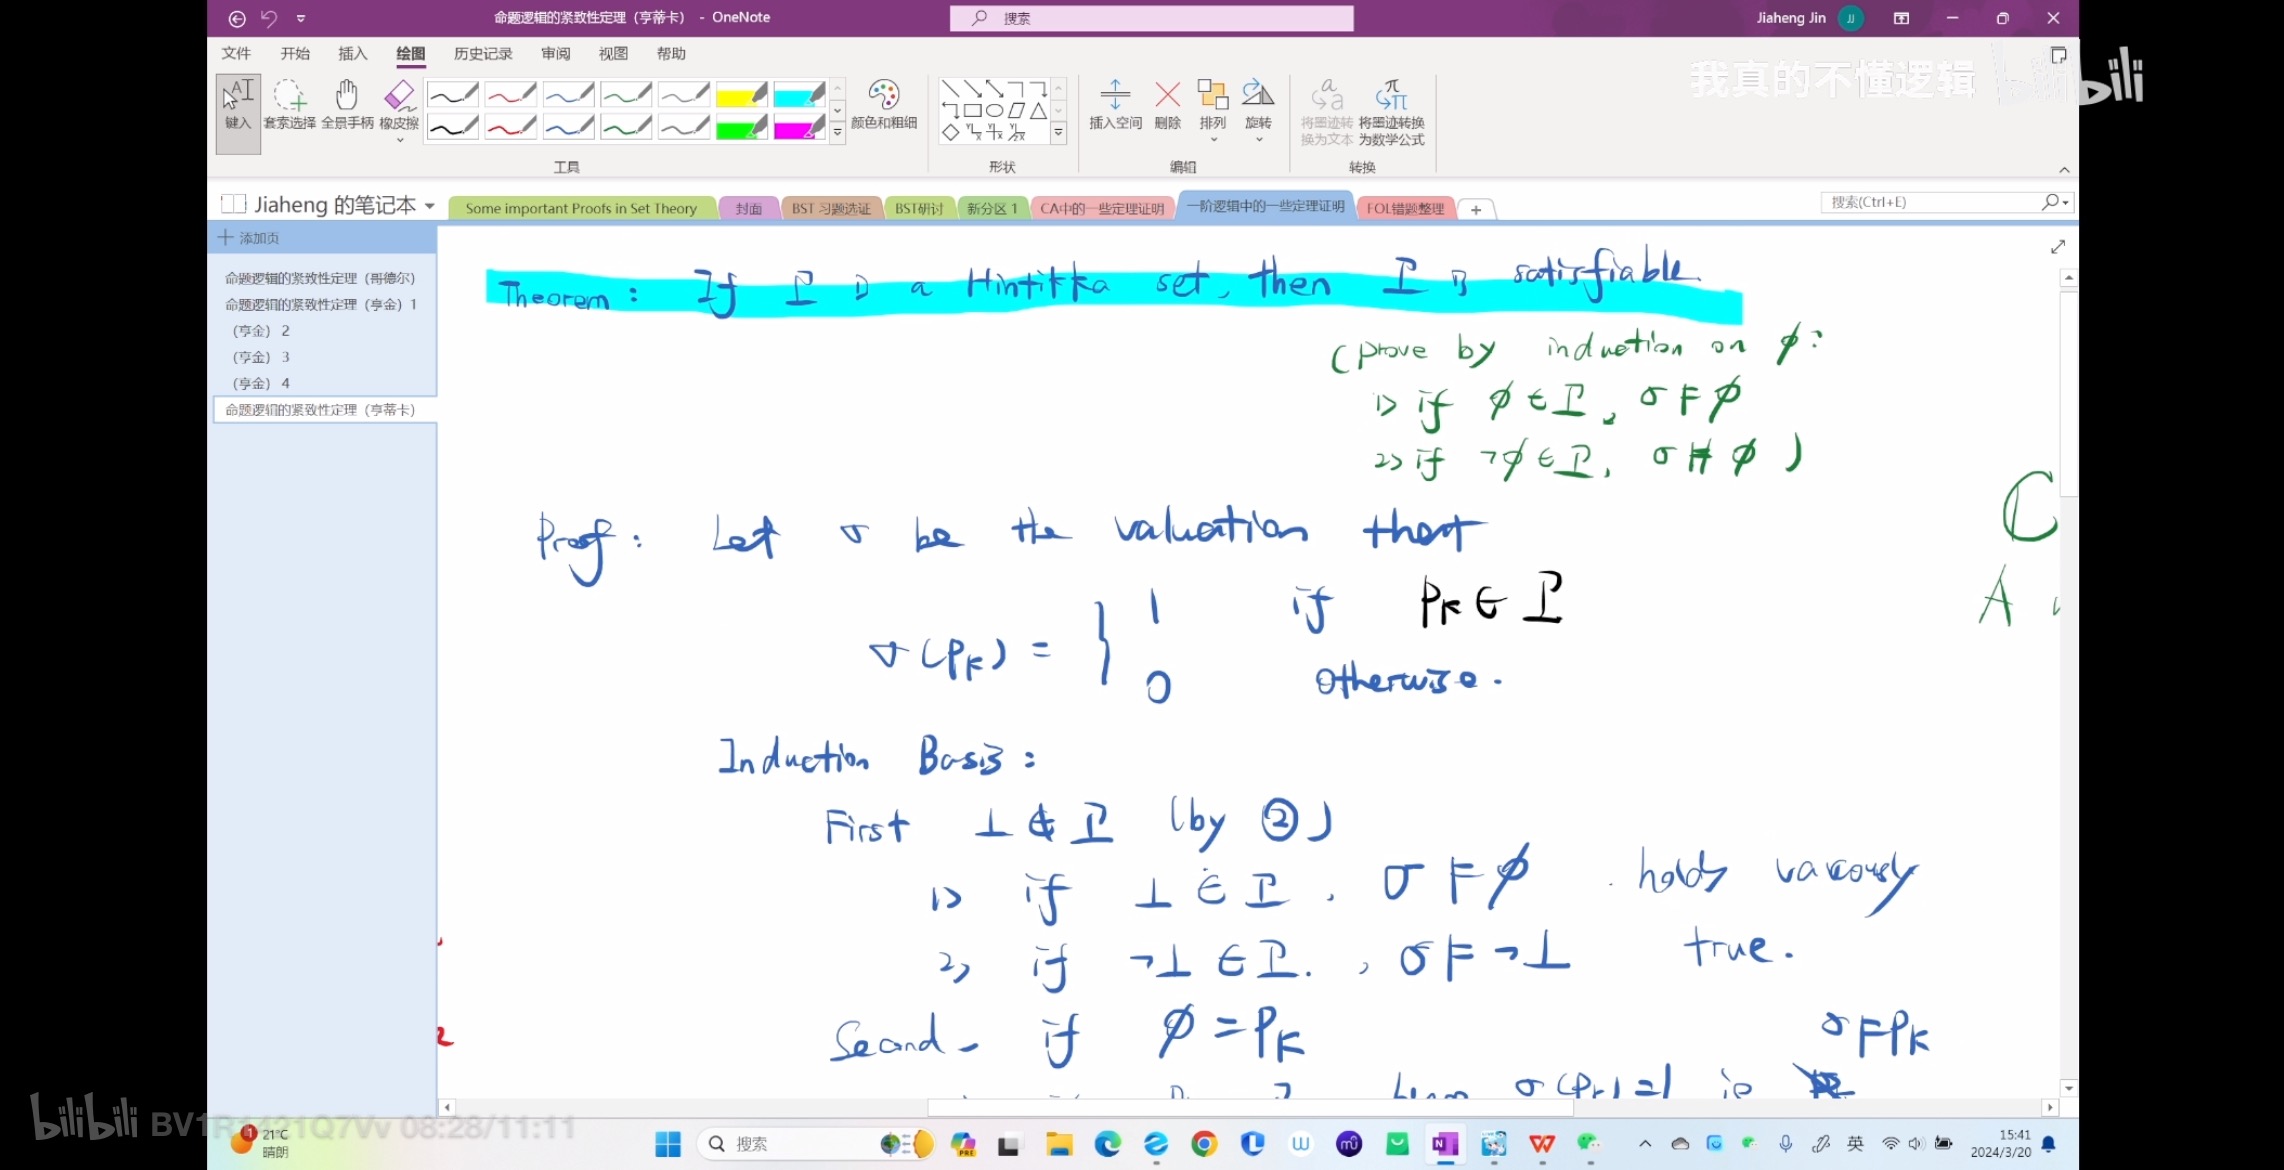 命题逻辑的紧致性定理（亨蒂卡） - OneNote
搜索
Jiaheng Jin
JJ
文件 开始 插入 绘图 历史记录 审阅 视图 帮助
我真的不懂逻辑 bilibili
键入 套索选择 全景手柄 橡皮擦
颜色和粗细
插入空间 删除 排列 旋转
将墨迹转换为文本 将墨迹转换为数学公式
工具 形状 编辑 转换
Jiaheng 的笔记本
Some important Proofs in Set Theory 封面 BST 习题选证 BST研讨 新分区 1 CA中的一些定理证明 一阶逻辑中的一些定理证明 FOL错题整理 +
搜索(Ctrl+E)
添加页
命题逻辑的紧致性定理（哥德尔）
命题逻辑的紧致性定理（亨金）1
（亨金）2
（亨金）3
（亨金）4
命题逻辑的紧致性定理（亨蒂卡）
Theorem: If Σ is a Hintikka set, then Σ is satisfiable
(prove by induction on φ:
1> if φ ∈ Σ, σ ⊨ φ
2> if ¬φ ∈ Σ, σ ⊭ φ )
C
Proof: Let σ be the valuation that
A
σ(Pk) = { 1 if Pk ∈ Σ
0 otherwise.
Induction Basis:
First ⊥ ∉ Σ (by ②)
1> if ⊥ ∈ Σ, σ ⊨ φ. holds
2> if ¬⊥ ∈ Σ., σ ⊨ ¬⊥ true.
Second. if φ = Pk σ ⊨ Pk
σ(Pk)=1 is
bilibili BV1R1421Q7Vv 08:28/11:11
1
21°C
晴朗
搜索
PRE
英
15:41
2024/3/20